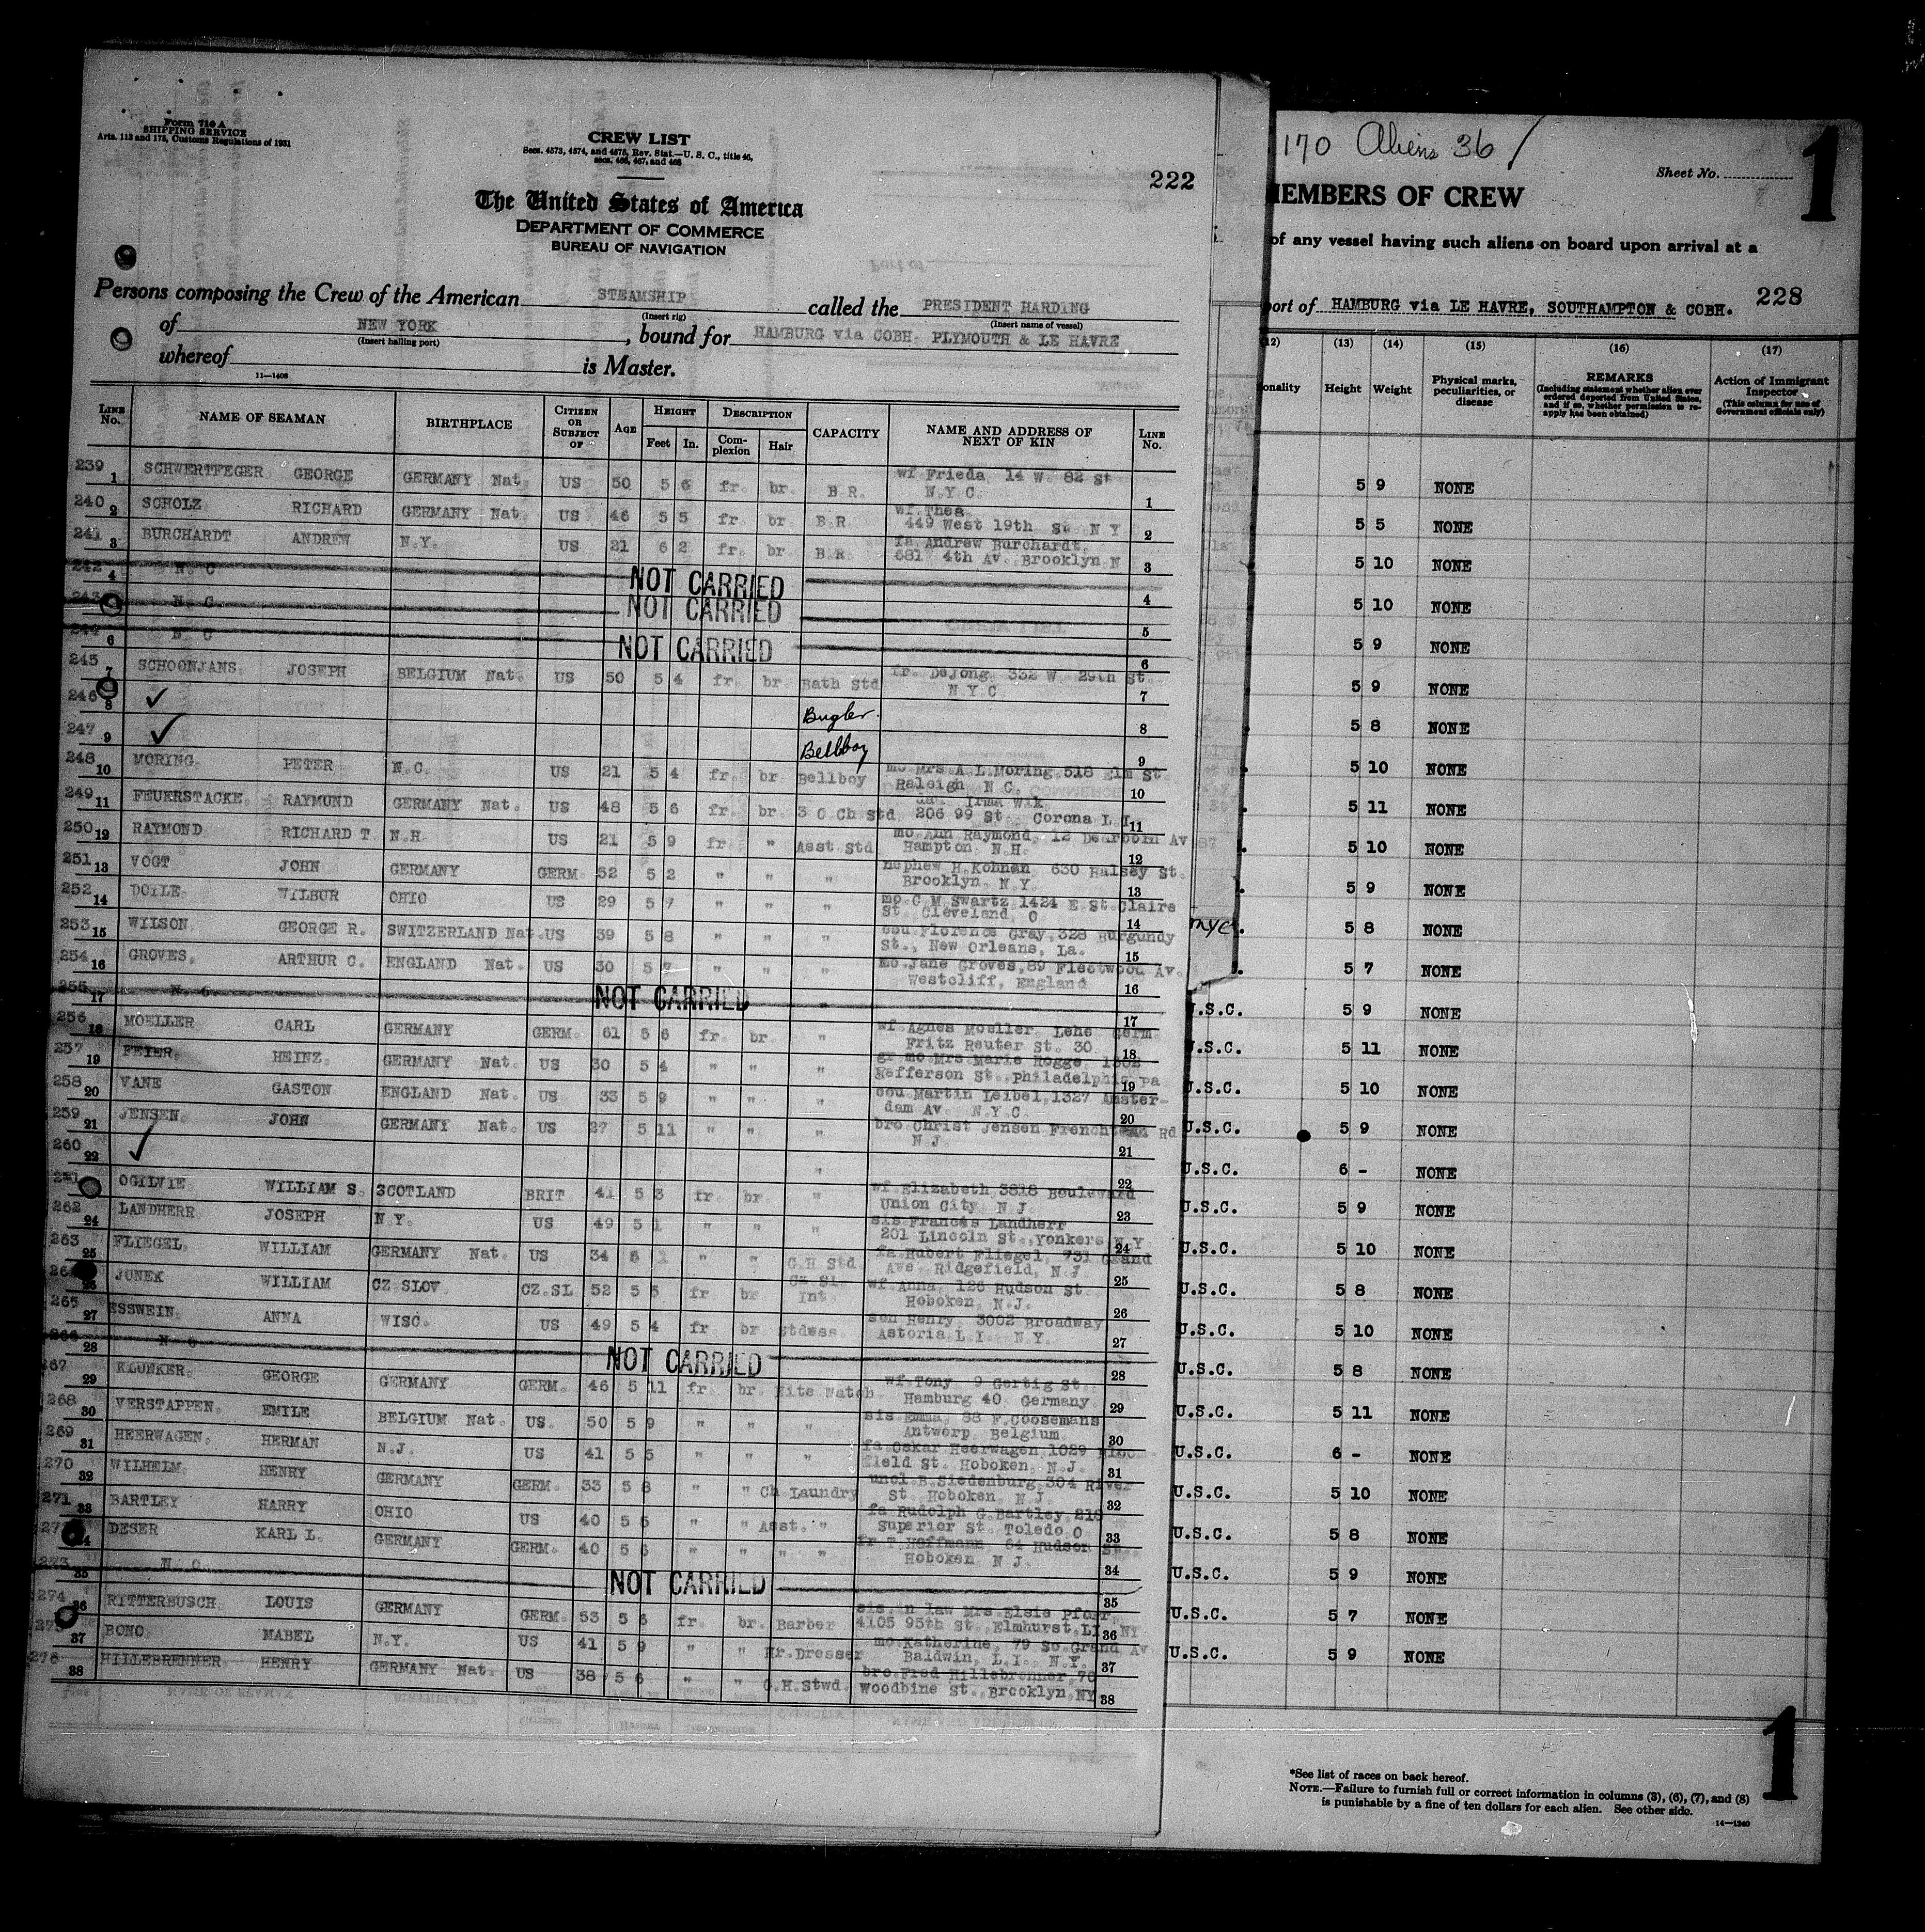 Form 710 A
SHIPPING SERVICE
Arts. 113 and 175, Customs Regulations of 1931
CREW LIST
Secs. 4573, 4574, and 4575, Rev. Stat.—U. S. C., title 46,
secs. 466, 467, and 468
222
The United States of America
DEPARTMENT OF COMMERCE
BUREAU OF NAVIGATION
Persons composing the Crew of the American STEAMSHIP called the PRESIDENT HARDING
(Insert rig) (Insert name of vessel)
of NEW YORK, bound for HAMBURG via COBH PLYMOUTH & LE HAVRE
(Insert hailing port)
whereof is Master.
11—1408
LINE No. NAME OF SEAMAN BIRTHPLACE CITIZEN OR SUBJECT OF AGE HEIGHT Feet In. DESCRIPTION Complexion Hair CAPACITY NAME AND ADDRESS OF NEXT OF KIN LINE No.
239 1 SCHWERTFEGER GEORGE GERMANY Nat. US 50 5 6 fr. br. B.R. wf Frieda 14 W. 82 St N.Y.C. 1
240 2 SCHOLZ RICHARD GERMANY Nat. US 46 5 5 fr. br B.R wf.Thea 449 West 19th St. N Y 2
241 3 BURCHARDT ANDREW N.Y. US 21 6 2 fr. br B.R. fa Andrew Burchardt, 681 4th Av. Brooklyn N 3
242 4 N. C NOT CARRIED 4
243 N. C. NOT CARRIED 5
244 6 N. C NOT CARRIED 6
245 7 SCHOONJANS JOSEPH BELGIUM Nat. US 50 5 4 fr. br. Bath Std fr. DeJong 332 W 29th St. N.Y.C 7
246 8 ✓ Bugler. 8
247 9 ✓ Bellboy 9
248 10 MORING PETER N.C. US 21 5 4 fr. br Bellboy mo Mrs.A.L.Moring 518 Elm St. Raleigh N C. 10
249 11 FEUERSTACKE RAYMOND GERMANY Nat. US 48 5 6 fr. br 3 C Ch Std Irma Wik 206 99 St. Corona L I. 11
250 12 RAYMOND RICHARD T. N.H. US 21 5 9 fr. " Asst Std mo Ann Raymond, 12 Dearborn Av Hampton N.H. 12
251 13 VOGT JOHN GERMANY GERM. 52 5 2 " " " nephew H.Kohnen 630 Halsey St. Brooklyn N.Y. 13
252 14 DOILE WILBUR OHIO US 29 5 7 " " " mo C M Swartz 1424 E St.Claire St. Cleveland O 14
253 15 WILSON GEORGE R. SWITZERLAND Nat. US 39 5 8 " " " cou Florence Gray,328 Burgundy St., New Orleans, La. 15
254 16 GROVES, ARTHUR C. ENGLAND Nat. US 30 5 7 " " " mo Jane Groves,89 Fleetwood Av. Westcliff, England 16
255 17 N. C. NOT CARRIED " 17
256 18 MOELLER CARL GERMANY GERM. 61 5 6 fr. br. " wf Agnes Moeller Lehe Germ Fritz Reuter St. 30 18
257 19 FEIER HEINZ GERMANY Nat. US 30 5 4 " " " gr mo Mrs Marie Rogge 1302 Jefferson St. Philadelphia Pa 19
258 20 VANE GASTON ENGLAND Nat. US 33 5 9 " " " cou Martin Leibel,1327 Amsterdam Av N.Y.C 20
259 21 JENSEN JOHN GERMANY Nat. US 27 5 11 " " " bro Christ Jensen Rd N J. 21
260 22 ✓ " 22
OGILVIE WILLIAM S. SCOTLAND BRIT 41 5 3 fr. br. " wf Elizabeth 3818 Boulevard Union City N J 23
262 24 LANDHERR JOSEPH N.Y. US 49 5 1 " " " sis Francis Landherr 201 Lincoln St. Yonkers N Y 24
263 25 FLIEGEL WILLIAM GERMANY Nat. US 34 " " C.H Std. fa Hubert Fliegel, 731 Grand Ave. Ridgefield, N J 25
26 JUNEK WILLIAM CZ SLOV CZ.SL 52 5 5 fr br Cz Sl Int. wf Anna 126 Hudson St. Hoboken N.J. 26
265 27 ESSWEIN ANNA WISC. US 49 5 4 fr br Stdwss. son Henry 3002 Broadway Astoria L I. N.Y. 27
266 28 N C NOT CARRIED 28
267 29 KLUNKER GEORGE GERMANY GERM. 46 5 11 fr br. Nite Watch wf Tony 9 Gertig St. Hamburg 40 Germany 29
268 30 VERSTAPPEN. EMILE BELGIUM Nat. US. 50 5 9 " " " sis Emma 88 F.Coosemans Antwerp Belgium 30
269 31 HEERWAGEN. HERMAN N.J. US 41 5 5 " " " fa Oskar Heerwagen 1029 field St. Hoboken N.J. 31
270 32 WILHELM HENRY GERMANY GERM. 33 5 8 " " Ch Laundry uncl B.Siedenburg 304 River St Hoboken N J. 32
271 33 BARTLEY HARRY OHIO US 40 5 5 " " Asst. " fa Rudolph G Bartley, 218 Superior St. Toledo O 33
DESER KARL L. GERMANY GERM. 40 5 6 " " " " fr T Hoffmann 64 Hudson St. Hoboken N J. 34
273 35 N. C. NOT CARRIED 35
274 36 RITTERBUSCH LOUIS GERMANY GERM. 53 5 6 fr. br. Barber sis in law Mrs Elsie 4105 95th St. Elmhurst LI NY 36
37 BONO MABEL N.Y. US 41 5 9 " " Hr.Dresser mo Katherine 79 So Grand Av Baldwin, L.I. N.Y. 37
276 38 HILLEBRENNER HENRY GERMANY Nat. US 38 5 6 " " C.H.Stwd. bro Fred Hillebrenner 70 Woodbine St. Brooklyn NY 38
170 Aliens 36 /
Sheet No.
1
MEMBERS OF CREW
of any vessel having such aliens on board upon arrival at a
port of HAMBURG via LE HAVRE, SOUTHAMPTON & COBH.
228
(12) (13) (14) (15) (16) (17)
onality Height Weight Physical marks, peculiarities, or disease REMARKS (Including statement whether alien ever ordered deported from United States, and if so, whether permission to reapply has been obtained) Action of Immigrant Inspector (This column for use of Government officials only)
5 9 NONE
5 5 NONE
5 10 NONE
5 10 NONE
5 9 NONE
5 9 NONE
5 8 NONE
5 10 NONE
5 11 NONE
5 10 NONE
5 9 NONE
nyc. 5 8 NONE
5 7 NONE
U.S.C. 5 9 NONE
U.S.C. 5 11 NONE
U.S.C. 5 10 NONE
U.S.C. 5 9 NONE
U.S.C. 6 - NONE
U.S.C. 5 9 NONE
U.S.C. 5 10 NONE
U.S.C. 5 8 NONE
U.S.C. 5 10 NONE
U.S.C. 5 8 NONE
U.S.C. 5 11 NONE
U.S.C. 6 - NONE
U.S.C. 5 10 NONE
U.S.C. 5 8 NONE
U.S.C. 5 9 NONE
U.S.C. 5 7 NONE
U.S.C. 5 9 NONE
*See list of races on back hereof.
NOTE.—Failure to furnish full or correct information in columns (3), (6), (7), and (8)
is punishable by a fine of ten dollars for each alien. See other side.
14—1240
1